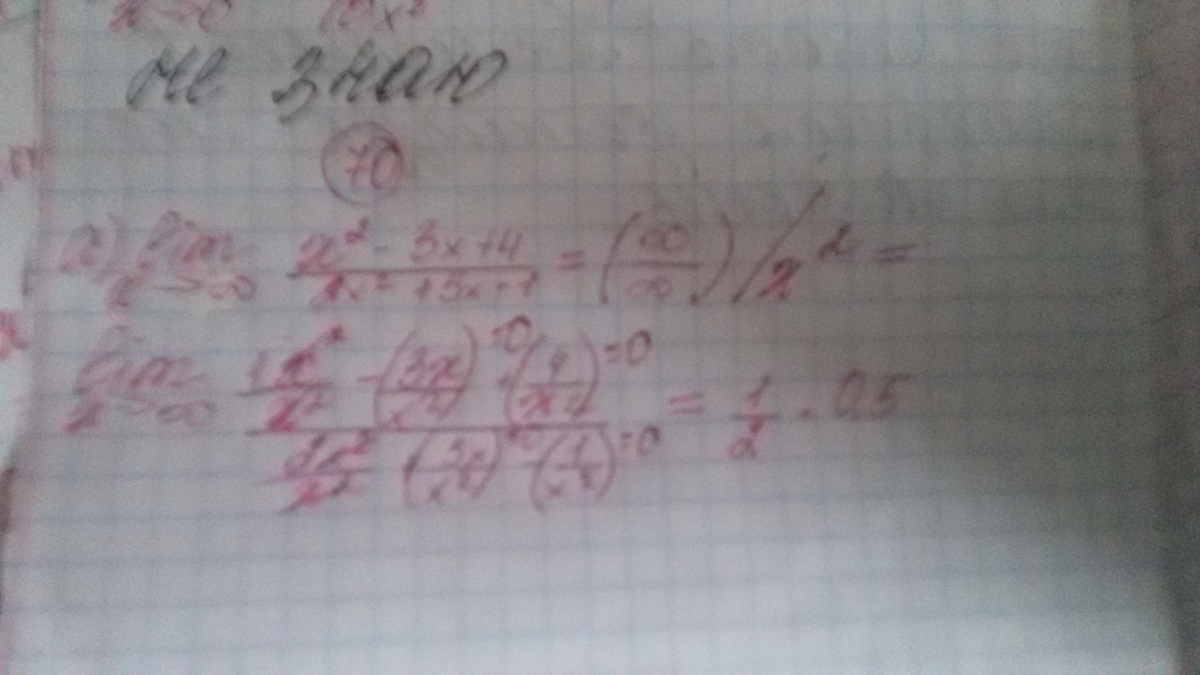 не знаю
70
а) lim x→∞ x² - 3x+4 / 2x² +5x-1 = (∞/∞) / x² =
lim x→∞ 1x²/x² - (3x/x²)=0 + (4/x²)=0 / 2x²/x² (5x/x²)=0 - (1/x²)=0 = 1/2 = 0.5